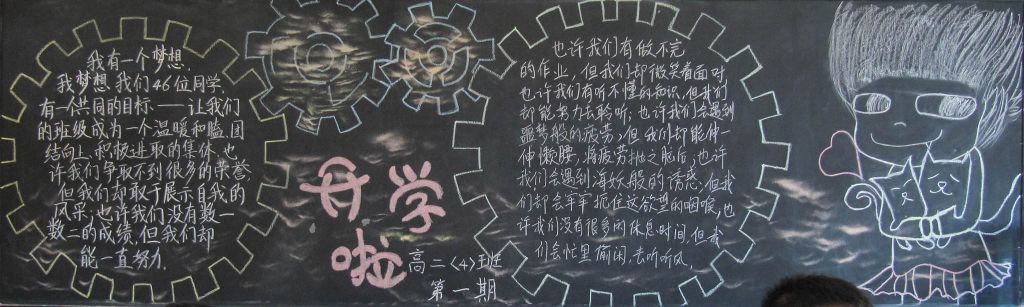 我有一个梦想.
我梦想,我们46位同学.
有一个共同的目标——让我们
的班级成为一个温暖和睦,团
结向上,积极进取的集体.也
许我们争取不到很多的荣誉
但我们却敢于展示自我的
风采;也许我们没有数一
数二的成绩,但我们却
能一直努力.
开学
啦
高二<4>班
第一期
也许我们有做不完
的作业,但我们却微笑着面对
也许我们有听不懂的知识,但我们
却能努力去聆听;也许我们会遇到
噩梦般的疲劳,但我们却能伸一
伸懒腰,将疲劳抛之脑后;也许
我们会遇到海妖般的诱惑,但我
们却会牢牢扼住这欲望的咽喉,也
许我们没有很多的休息时间,但我
们会忙里偷闲,去听听风.